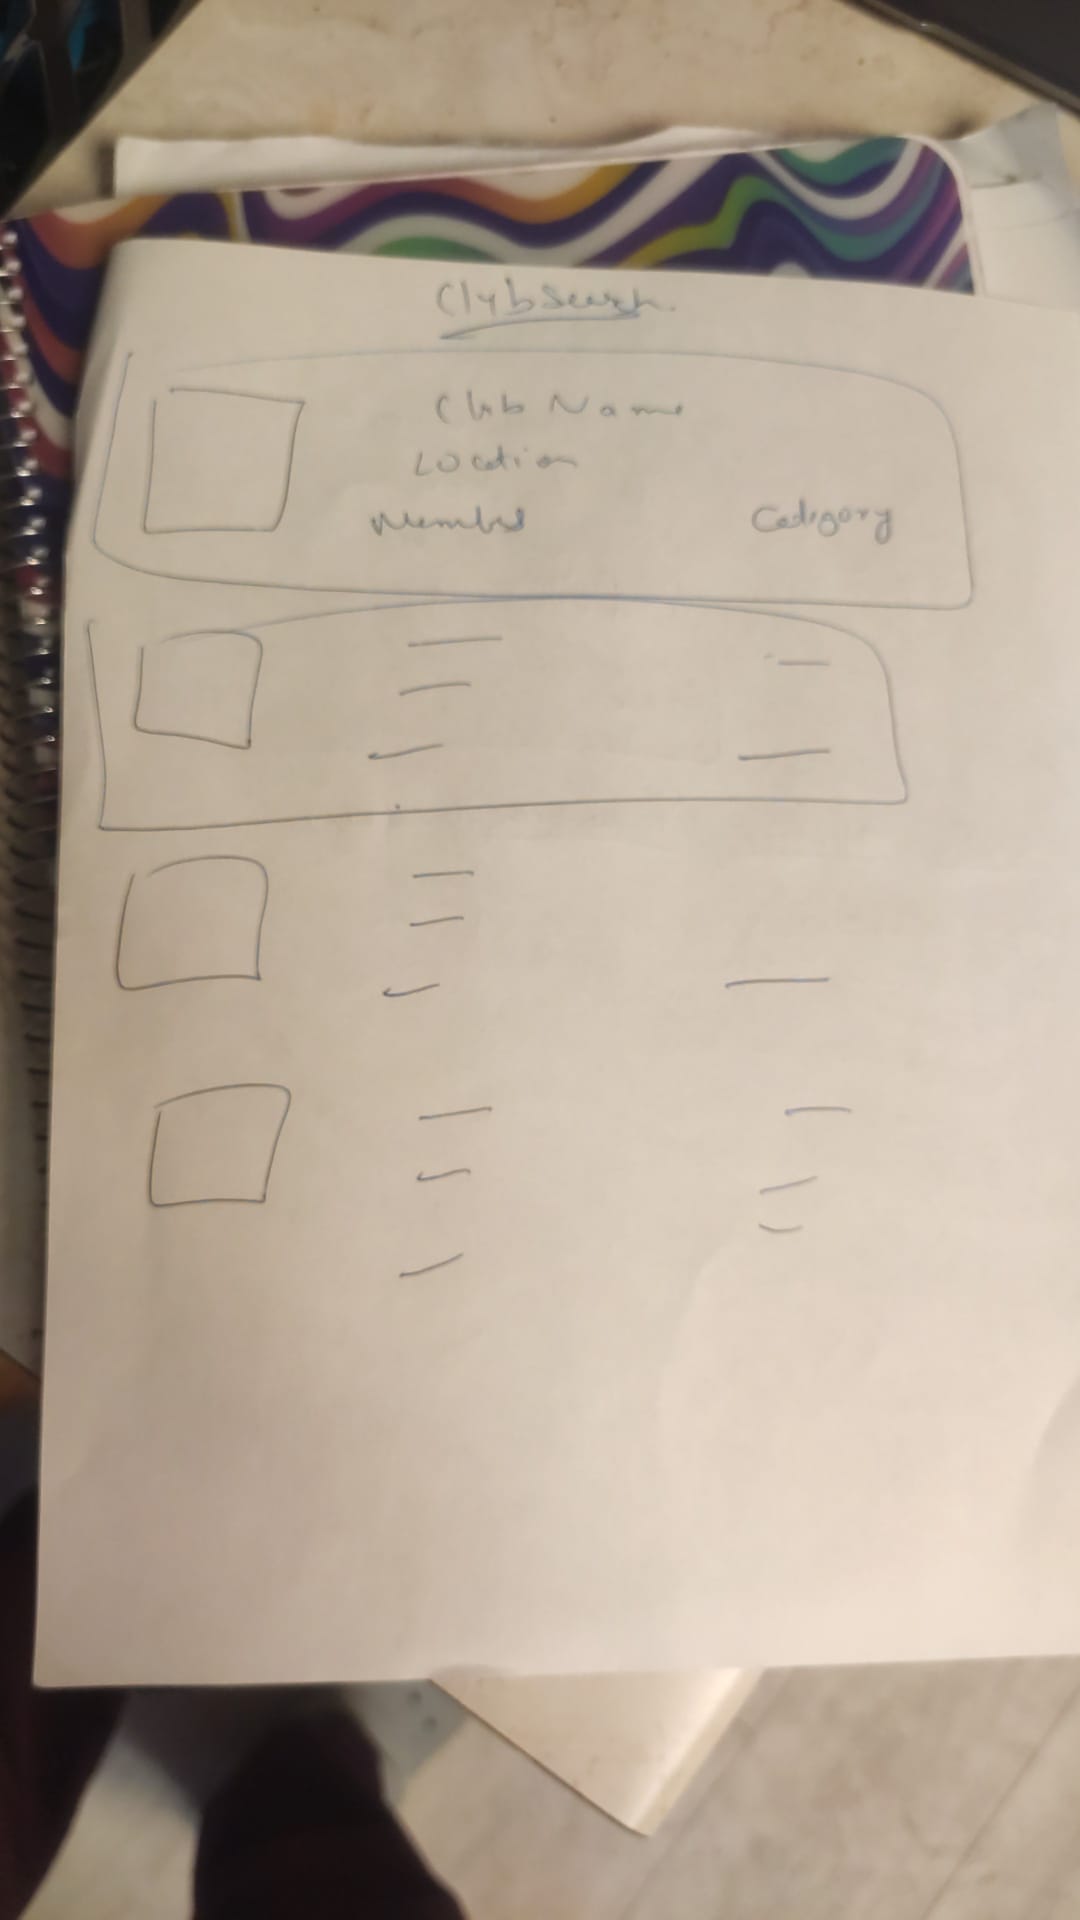 Club Search
Club Name
Location
Members
Category